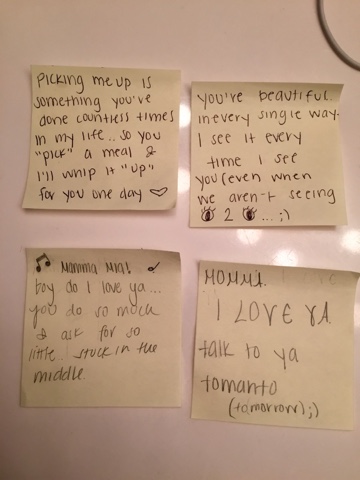 Picking me up is
something you've
done countless times
in my life.. so you
"pick" a meal &
I'll whip it "up"
for you one day ♡
you're beautiful
in every single way.
I see it every
time I see
you (even when
we aren't seeing
👁 2 👁 ... ;)
🎵 Mamma Mia! ♪
boy do I love ya...
you do so much
& ask for so
little.. stuck in the
middle.
MOMMA.
I LOVE YA.
talk to ya
tomanto
(tamorrow) ;)